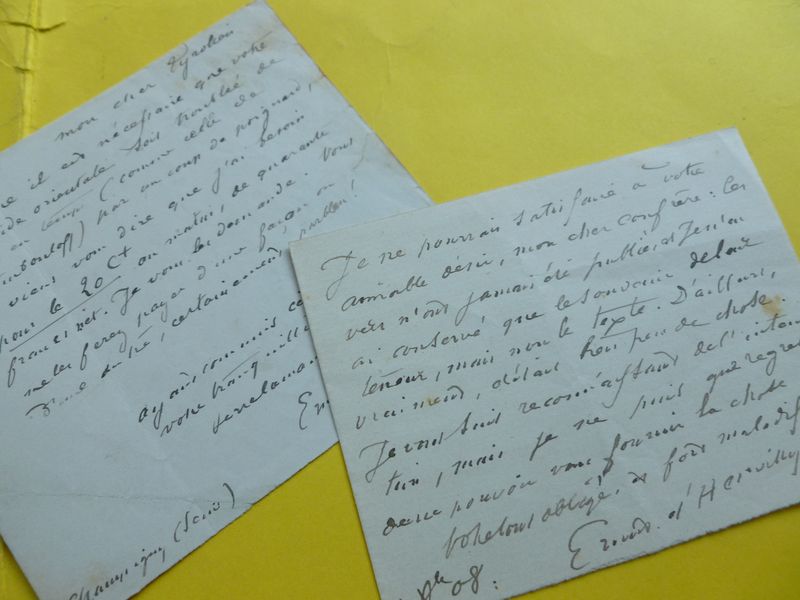 mon cher
il est nécessaire que votre
orientale soit troublé de
en temps (comme celle de
) par un coup de poignard,
viens vous dire que j'ai besoin
pour le 20 ct au matin, de quarante
francs net. Je vous les demande. Vous
me les ferez payer d'une façon ou
certainement, parbleu!
ayant commis ce
votre tranquilli
Champigny (Seine)
Je ne pourrai satisfaire à votre
aimable désir, mon cher confrère: les
vers n'ont jamais été publiés et je n'en
ai conservé que le souvenir de leur
teneur, mais non le texte. D'ailleurs,
vraiment, c'était bien peu de chose.
Je vous suis reconnaissant de l'inten
tion, mais je ne puis que regre
de ne pouvoir vous fournir la chose
Votre tout obligé, et fort maladif
Ernest d'Hervilly
08.